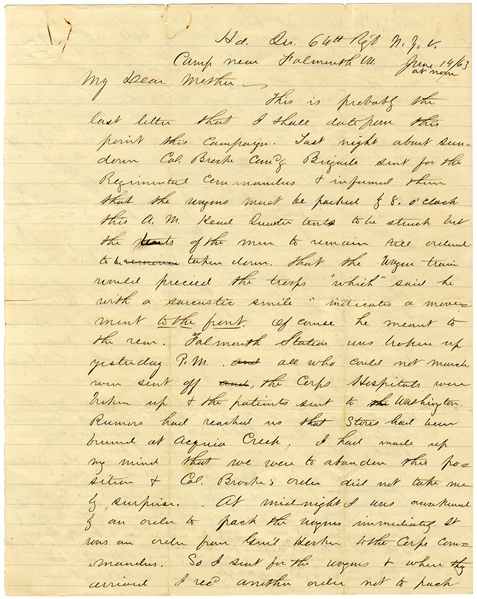 Hd. Qrs. 64th Regt N.Y.V.
Camp near Falmouth Va. June 14/63
at noon
My Dear Mother
This is probably the
last letter that I shall date from this
point this Campaign. Last night about sun-
down Col Brooke Com'g Brigade sent for the
Regimental Commanders & informed them
that the wagons must be packed by 8. o'clock
this A.M. Head Quarter tents to be struck but
the tents of the men to remain till ordered
to be removed taken down. that the Wagon-train
would preceed the troops "which" said he
with a sarcastic smile "indicates a move-
ment to the front. Of course he meant to
the rear. Falmouth Station was broken up
yesterday P.M. and all who could not march
were sent off and, the Corps Hospitals were
broken up & the patients sent to the Washington.
Rumors had reached us that Stores had been
burned at Acquia Creek, I had made up
my mind that we were to abandon this po-
sition & Col. Brooke's order did not take me
by surprise. At midnight I was awakened
by an order to pack the wagons immediately It
was an order from Genl Hooker to the Corps com-
manders. So I sent for the wagons & when they
arrived I recd another order not to pack